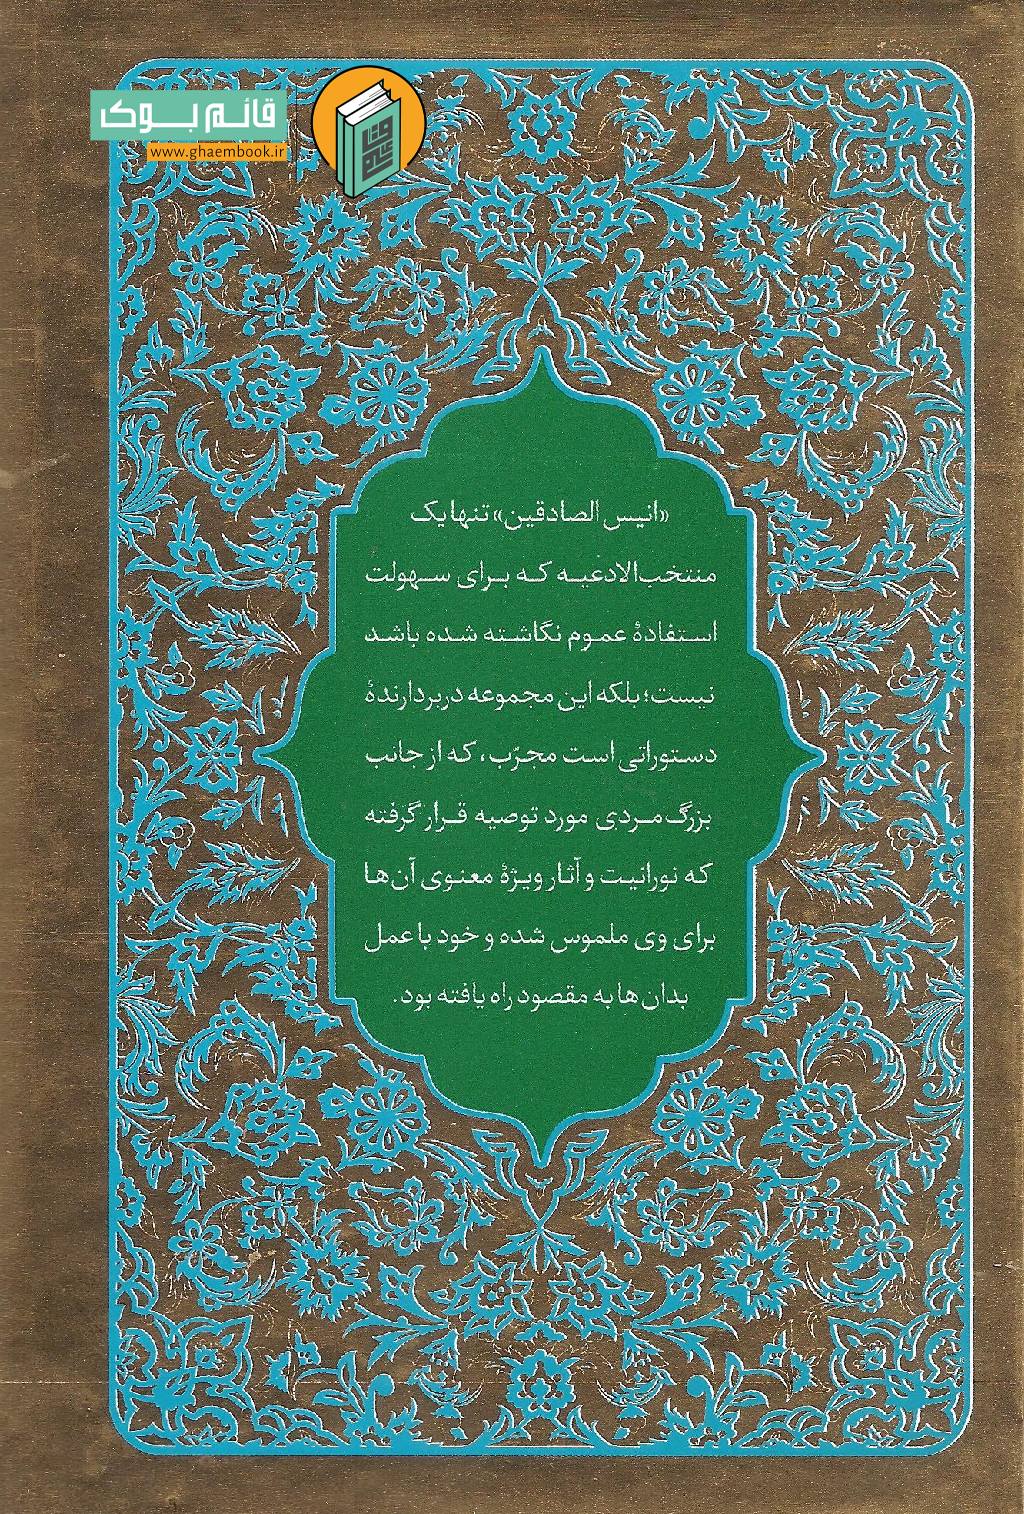 قائم بوک
www.ghaembook.ir
«انیس الصادقین» تنها یک
منتخب‌الادعیه که برای سهولت
استفادهٔ عموم نگاشته شده باشد
نیست؛ بلکه این مجموعه دربردارندهٔ
دستوراتی است مجرّب، که از جانب
بزرگ‌مردی مورد توصیه قرار گرفته
که نورانیت و آثار ویژهٔ معنوی آن‌ها
برای وی ملموس شده و خود با عمل
بدان‌ها به مقصود راه یافته بود.